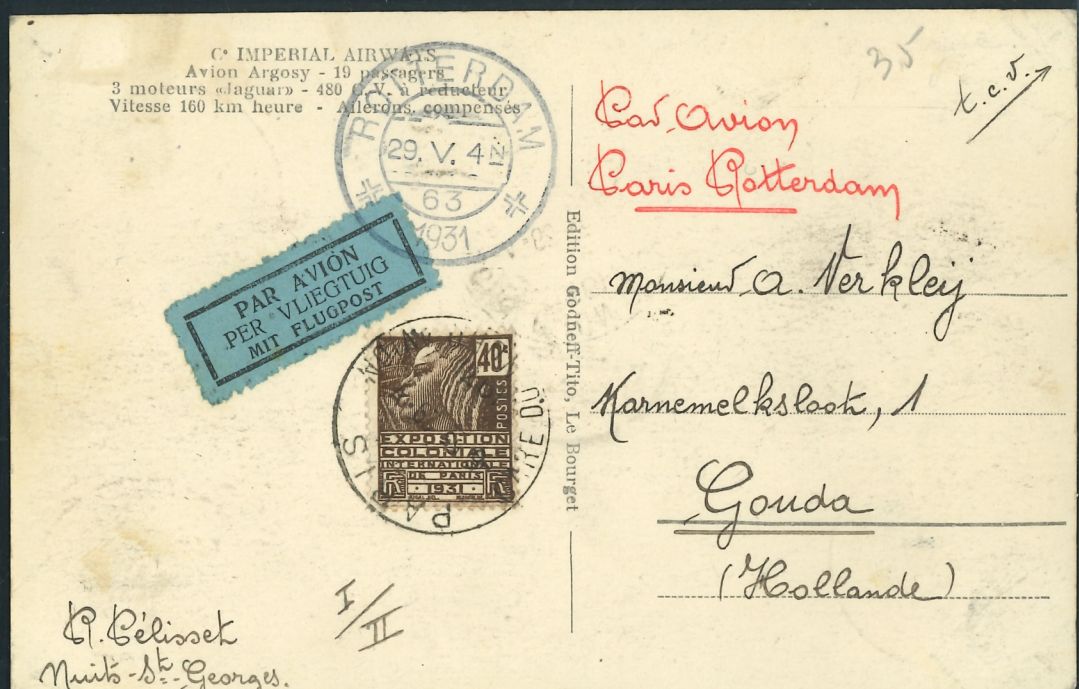 Cⁱᵉ IMPERIAL AIRWAYS
Avion Argosy - 19 passagers
3 moteurs «Jaguar» - 480 C.V. à réducteur
Vitesse 160 km heure - Ailerons compensés
ROTTERDAM
29. V. 4
63
1931
PAR AVION
PER VLIEGTUIG
MIT FLUGPOST
40c
POSTES
EXPOSITION
COLONIALE
INTERNATIONALE
DE PARIS
1931
PARIS
GARE DU
Edition Godneff-Tito, Le Bourget
R. Pélisset
Nuits-St-Georges.
I/II
35
t.c.v.
Par Avion
Paris Rotterdam
Monsieur A. Verkleij
Karnemelksloot, 1
Gouda
(Hollande)